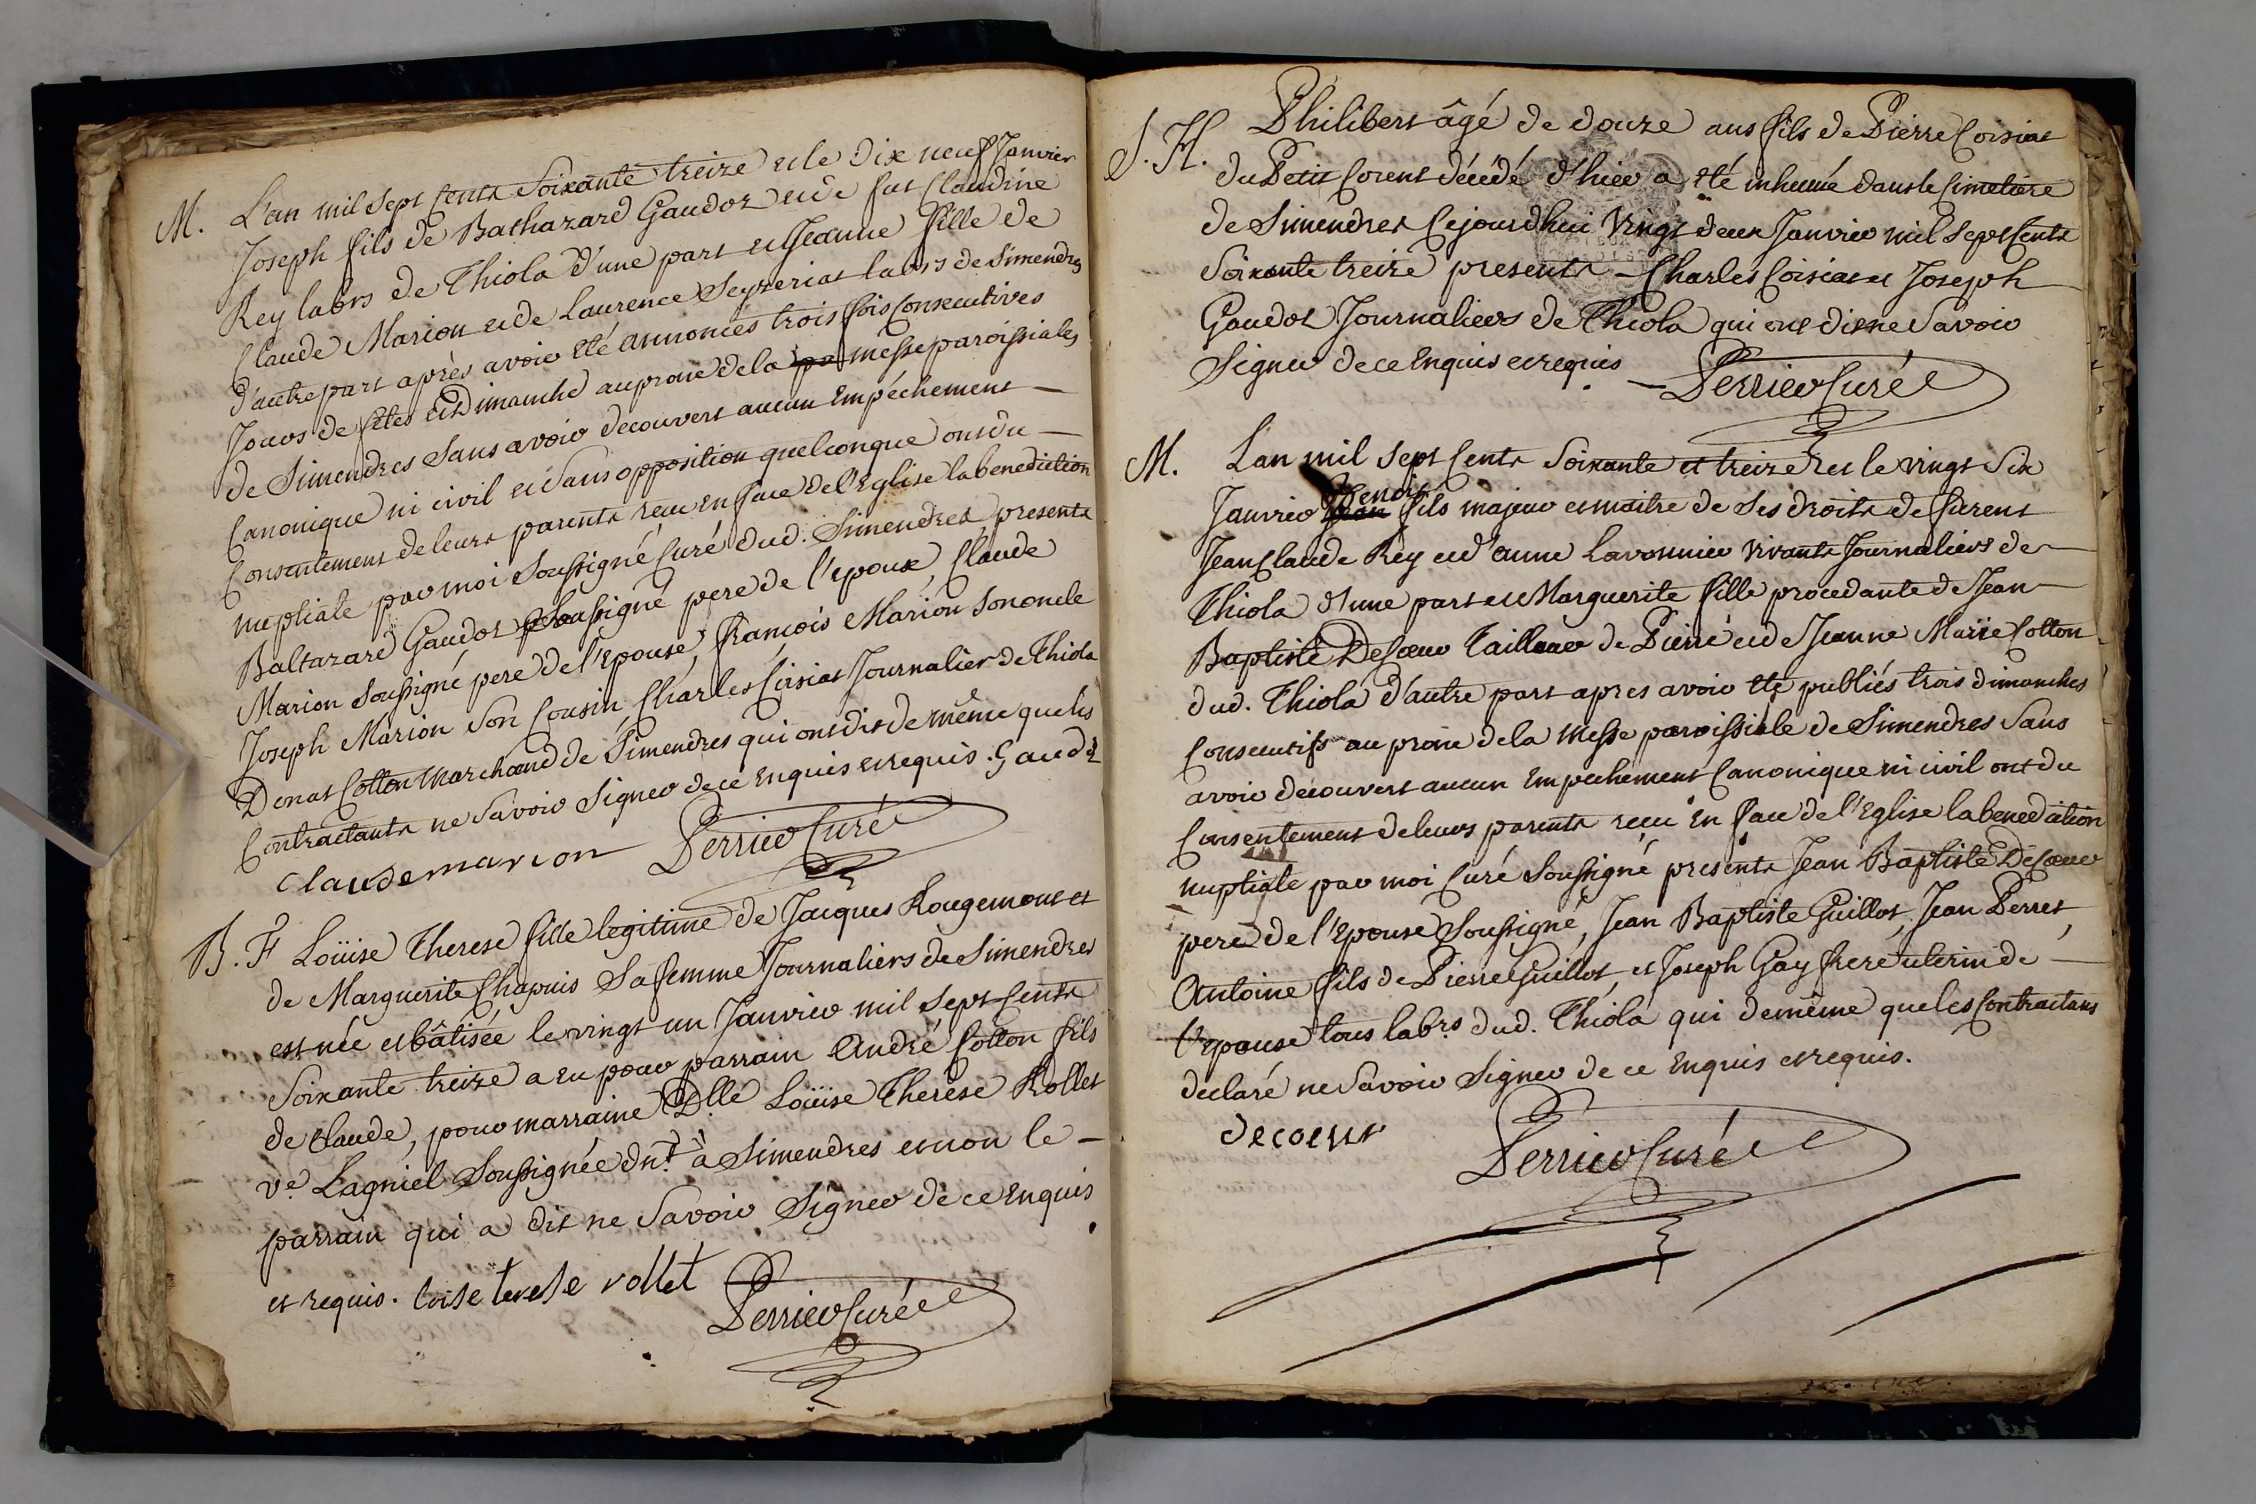 M. L'an mil sept cents soixante treize et le dix neuf Janvier
Joseph fils de Bathazard Gaudoz et de fut Claudine
Rey labrs de Thiola d'une part et Jeanne fille de
Claude Marion et de Laurence Seyzeriat labrs de Simendres
d'autre part après avoir eté annoncés trois fois consecutives
Jours de fêtes et dimanche au prone de la messe paroissiales
de Simendres sans avoir decouvert aucun empêchement
canonique ni civil et sans opposition quelconque ont du
consentement de leurs parents reçu en face de l'Eglise la benediction
nuptiale par moi soussigné Curé dud. Simendres presents
Baltazard Gaudoz soussigné pere de l'epoux, Claude
Marion soussigné pere de l'epouse, françois Marion son oncle
Joseph Marion son Cousin Charles Coisiat Journalier de Thiola
Donat Cotton marchand de Simendres qui ont dit de même que les
Contractants ne savoir signer de ce enquis et requis. Gaudoz
claude marion Perrier Curé
B. F Loüise Therese fille legitime de Jacques Rougemont et
de Marguerite Chapuis sa femme Journaliers de Simendres
est née et bâtisée le vingt un Janvier mil sept cents
soixante treize a eu pour parrain André Cotton fils
de Claude, pour marraine Dlle Loüise Therese Rollet
ve. Lagniel soussignée dnt à Simendres et non le
parrain qui a dit ne savoir signer de ce enquis
et requis. loise terese rollet Perrier Curé
S. H. Philibert âgé de douze ans fils de Pierre Coisiat
du Petit Corent décédé d'hier a eté inhumé dans le Cimetiere
de Simendres cejourdhui vingt deux Janvier mil sept cents
soixante treize presents Charles Coisiat et Joseph
Gaudoz Journaliers de Thiola qui ont dit ne savoir
signer de ce enquis et requis Perrier Curé
M. L'an mil sept cents soixante et treize et le vingt six
Janvier fils majeur et maitre de ses droits de furent
Jean Claude Rey et d'anne Lavonnier vivants Journaliers de
Thiola d'une part et Marguerite fille procedante de Jean
Baptiste Decoeur Tailleur de Pierre et de Jeanne Marie Cotton
dud. Thiola d'autre part apres avoir eté publiés trois dimanches
consecutifs au prone de la messe paroissiale de Simendres sans
avoir decouvert aucun empechement canonique ni civil ont du
consentement de leurs parents reçu en face de l'Eglise la benediction
nuptiale par moi Curé soussigné presents Jean Baptiste Decoeur
pere de l'epouse soussigné, Jean Baptiste Guillot, Jean Perret,
Antoine fils de Pierre Guillot, et Joseph Gay frere uterin de
l'epouse tous labrs. dud. Thiola qui de même que les Contractans
declaré ne savoir signer de ce enquis et requis.
decoeur Perrier Curé